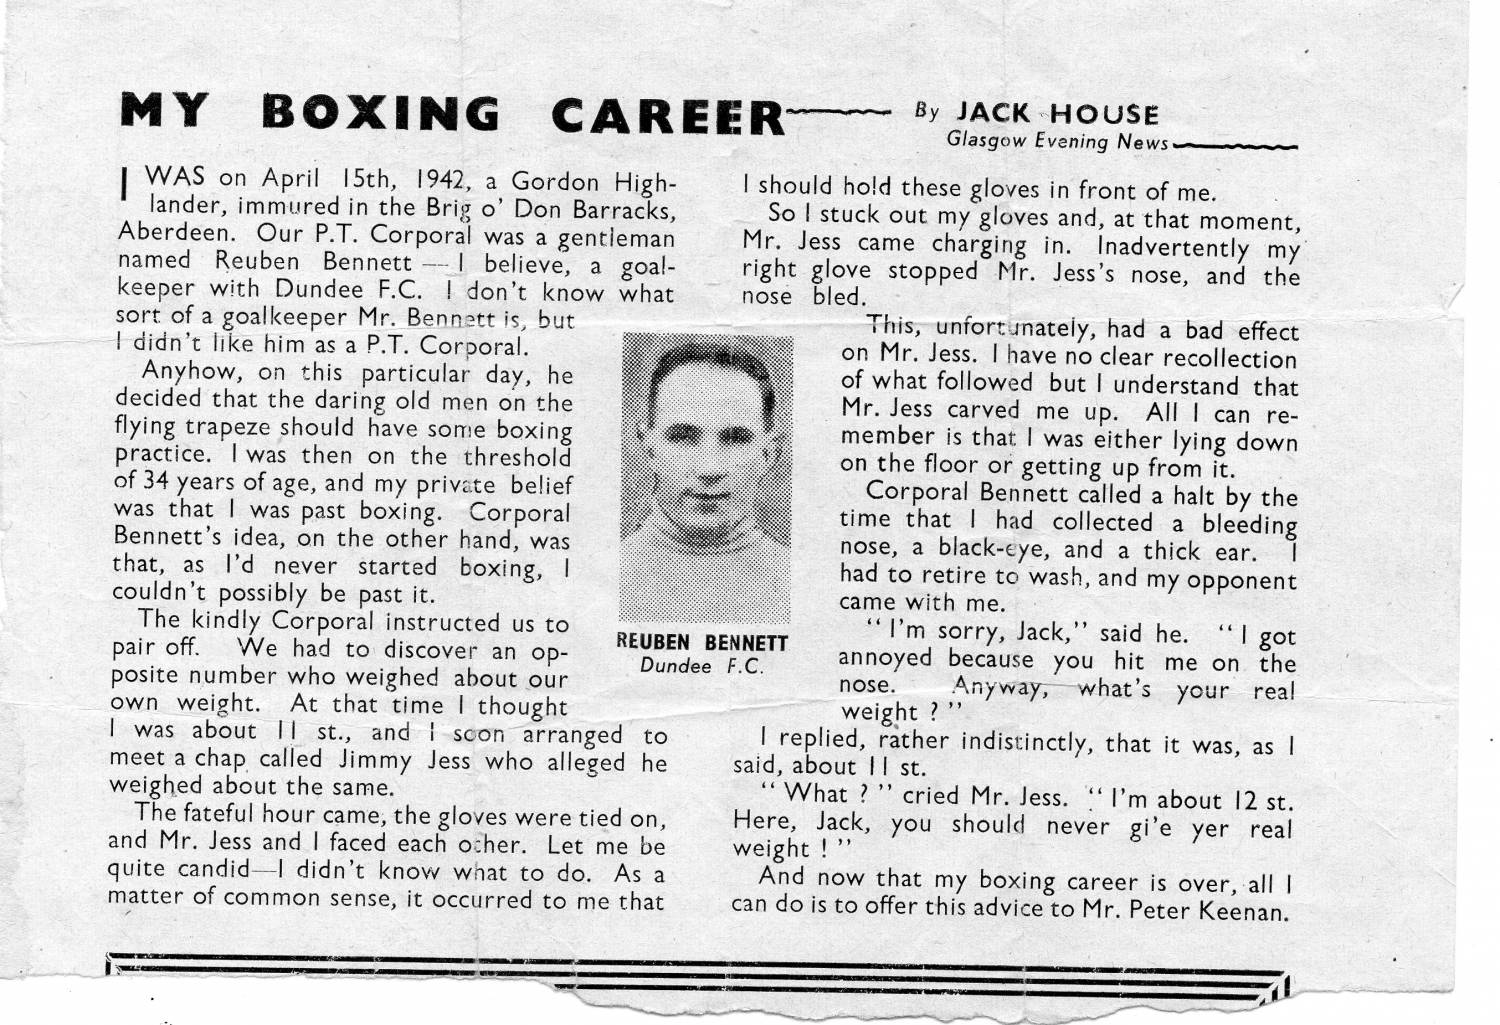 MY BOXING CAREER
By JACK HOUSE
Glasgow Evening News
I WAS on April 15th, 1942, a Gordon High-
lander, immured in the Brig o' Don Barracks,
Aberdeen. Our P.T. Corporal was a gentleman
named Reuben Bennett — I believe, a goal-
keeper with Dundee F.C. I don't know what
sort of a goalkeeper Mr. Bennett is, but
I didn't like him as a P.T. Corporal.
Anyhow, on this particular day, he
decided that the daring old men on the
flying trapeze should have some boxing
practice. I was then on the threshold
of 34 years of age, and my private belief
was that I was past boxing. Corporal
Bennett's idea, on the other hand, was
that, as I'd never started boxing, I
couldn't possibly be past it.
The kindly Corporal instructed us to
pair off. We had to discover an op-
posite number who weighed about our
own weight. At that time I thought
I was about 11 st., and I soon arranged to
meet a chap called Jimmy Jess who alleged he
weighed about the same.
The fateful hour came, the gloves were tied on,
and Mr. Jess and I faced each other. Let me be
quite candid—I didn't know what to do. As a
matter of common sense, it occurred to me that
REUBEN BENNETT
Dundee F.C.
I should hold these gloves in front of me.
So I stuck out my gloves and, at that moment,
Mr. Jess came charging in. Inadvertently my
right glove stopped Mr. Jess's nose, and the
nose bled.
This, unfortunately, had a bad effect
on Mr. Jess. I have no clear recollection
of what followed but I understand that
Mr. Jess carved me up. All I can re-
member is that I was either lying down
on the floor or getting up from it.
Corporal Bennett called a halt by the
time that I had collected a bleeding
nose, a black-eye, and a thick ear. I
had to retire to wash, and my opponent
came with me.
"I'm sorry, Jack," said he. "I got
annoyed because you hit me on the
nose. Anyway, what's your real
weight ?"
I replied, rather indistinctly, that it was, as I
said, about 11 st.
"What ?" cried Mr. Jess. "I'm about 12 st.
Here, Jack, you should never gi'e yer real
weight !"
And now that my boxing career is over, all I
can do is to offer this advice to Mr. Peter Keenan.